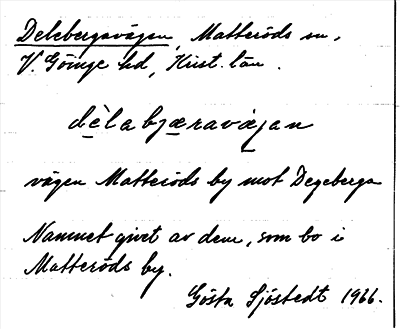 Delebergavägen, Matteröds sn,
V. Göinge hd, Krist. län.
dèlabjæravæjan
vägen Matteröds by mot Degeberga
Namnet givet av dem, som bo i
Matteröds by.
Gösta Sjöstedt 1966.